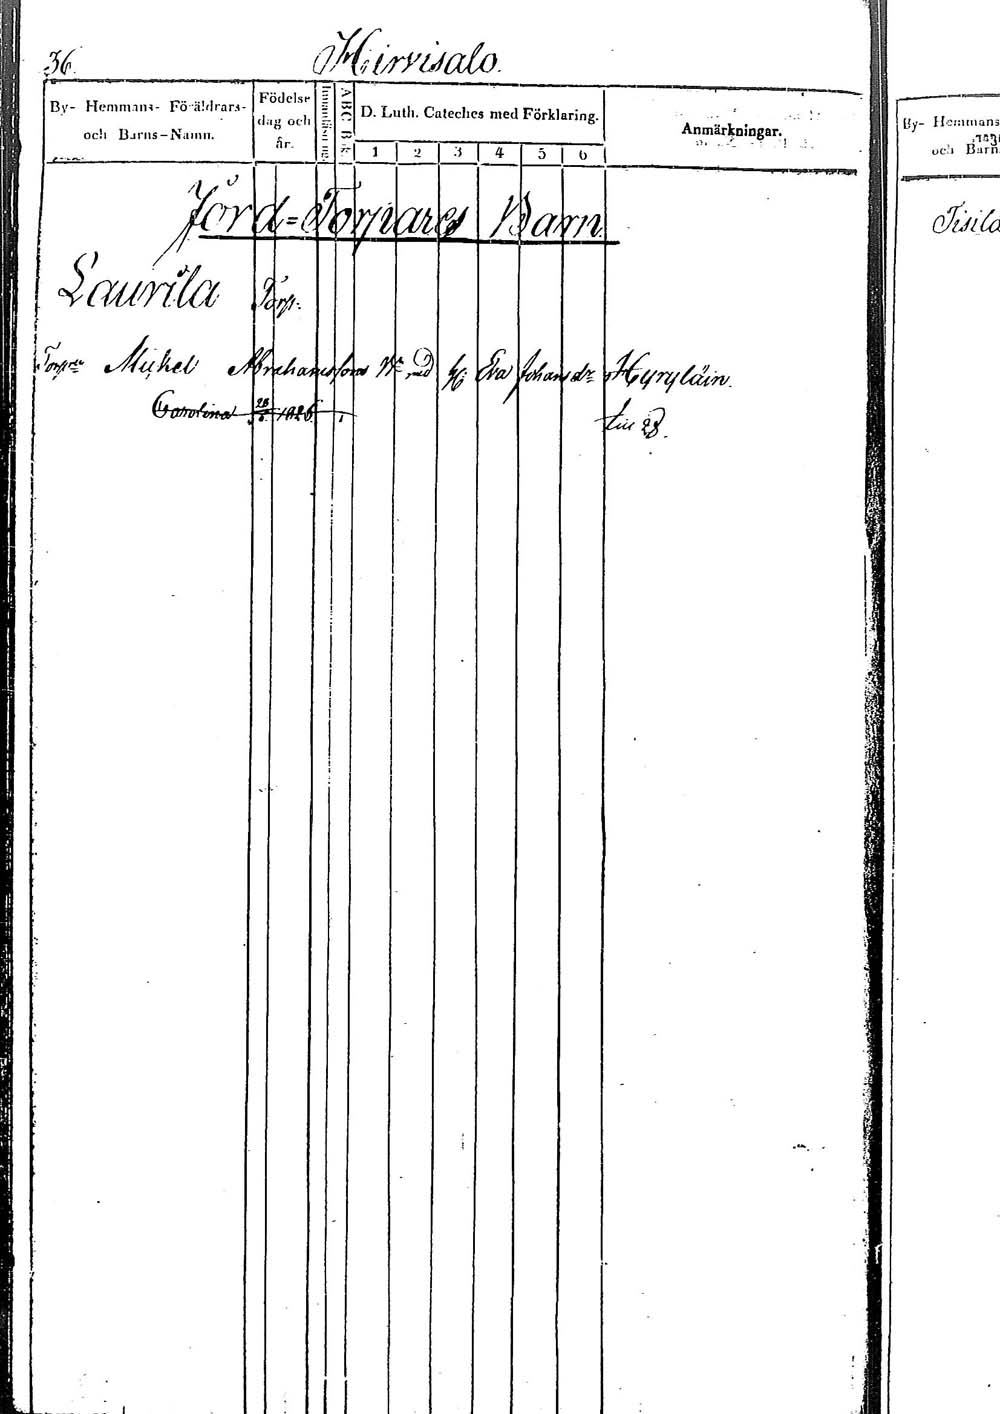 36. Hirvisalo.
By- Hemmans- Föräldrars- och Barns-Namn.
Födelse dag och år.
ABC Bok
D. Luth. Cateches med Förklaring.
1 2 3 4 5 6
Anmärkningar.
Jord=Torpares Barn
Laurila Torp.
Michel Abrahamsson med H. Eva Johansdr Hyryläin.
Carolina 1826
28.
By- Hemmans
och Barn
Tisila